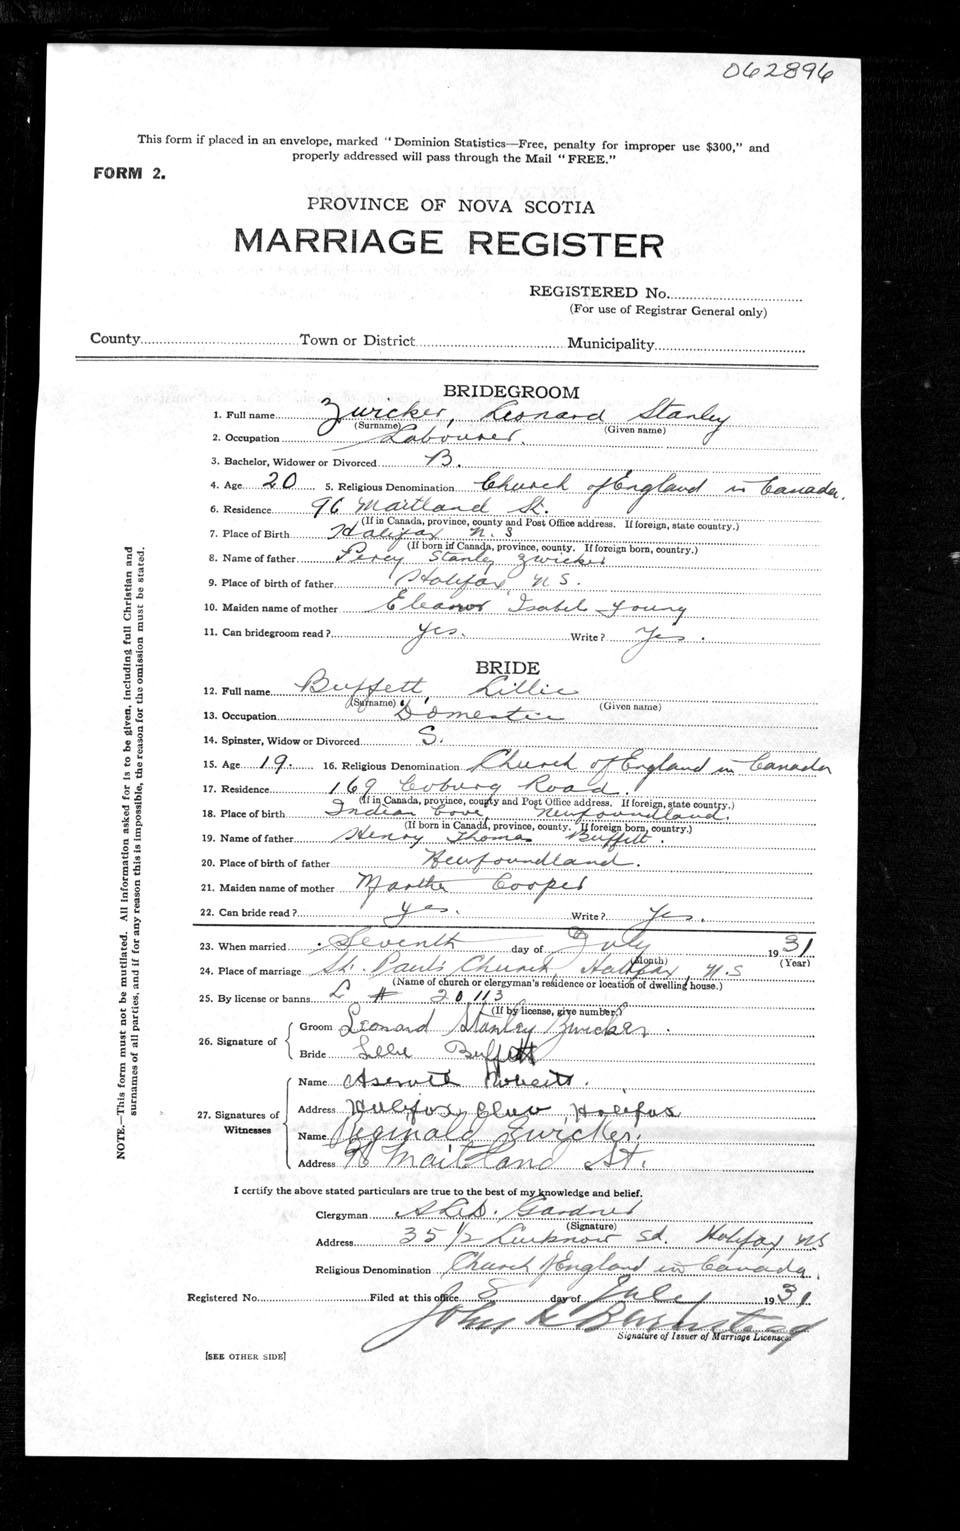 062896
This form if placed in an envelope, marked "Dominion Statistics—Free, penalty for improper use $300," and
properly addressed will pass through the Mail "FREE."
FORM 2.
PROVINCE OF NOVA SCOTIA
MARRIAGE REGISTER
REGISTERED No.
(For use of Registrar General only)
County Town or District Municipality
BRIDEGROOM
1. Full name Zwicker, Leonard Stanley
(Surname) (Given name)
2. Occupation Labourer.
3. Bachelor, Widower or Divorced B.
4. Age 20 5. Religious Denomination Church of England in Canada.
6. Residence 96 Maitland St.
(If in Canada, province, county and Post Office address. If foreign, state country.)
7. Place of Birth Halifax N. S
(If born in Canada, province, county. If foreign born, country.)
8. Name of father Percy Stanley Zwicker
9. Place of birth of father Halifax, N S.
10. Maiden name of mother Eleanor Isabel Young
11. Can bridegroom read? Yes. Write? Yes.
BRIDE
12. Full name Buffett, Lillie
(Surname) (Given name)
13. Occupation Domestic
14. Spinster, Widow or Divorced S.
15. Age 19. 16. Religious Denomination Church of England in Canada
17. Residence 169 Coburg Road.
(If in Canada, province, county and Post Office address. If foreign, state country.)
18. Place of birth Indian Cove, Newfoundland.
(If born in Canada, province, county. If foreign born, country.)
19. Name of father Henry Thomas Buffett.
20. Place of birth of father Newfoundland.
21. Maiden name of mother Martha Cooper
22. Can bride read? Yes. Write? Yes.
23. When married Seventh day of July 1931
(Month) (Year)
24. Place of marriage St. Paul's Church, Halifax, N. S
(Name of church or clergyman's residence or location of dwelling house.)
25. By license or banns L # 20113
(If by license, give number.)
26. Signature of
Groom Leonard Stanley Zwicker.
Bride Buffett
27. Signatures of Witnesses
Name
Address Halifax Club, Halifax
Name Reginald Zwicker.
Address 96 Maitland St.
I certify the above stated particulars are true to the best of my knowledge and belief.
Clergyman Gardner
(Signature)
Address 35 1/2 Lucknow St. Halifax NS
Religious Denomination Church of England in Canada.
Registered No. Filed at this office 8 day of July 1931
John
Signature of Issuer of Marriage Licenses.
[SEE OTHER SIDE]
NOTE.—This form must not be mutilated. All information asked for is to be given, including full Christian and
surnames of all parties, and if for any reason this is impossible, the reason for the omission must be stated.